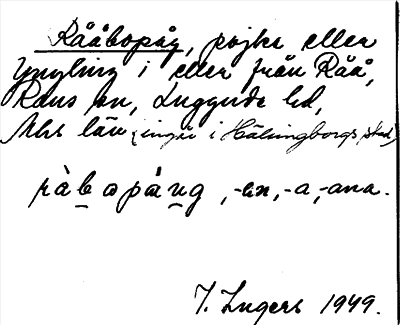 Rååbopåg, pojke eller
yngling i eller från Råå,
Raus sn, Luggude hd,
Mlhs län (ingår i Hälsingborgs stad)
råbopång, -en, -a, -ana.
I. Ingers 1949.